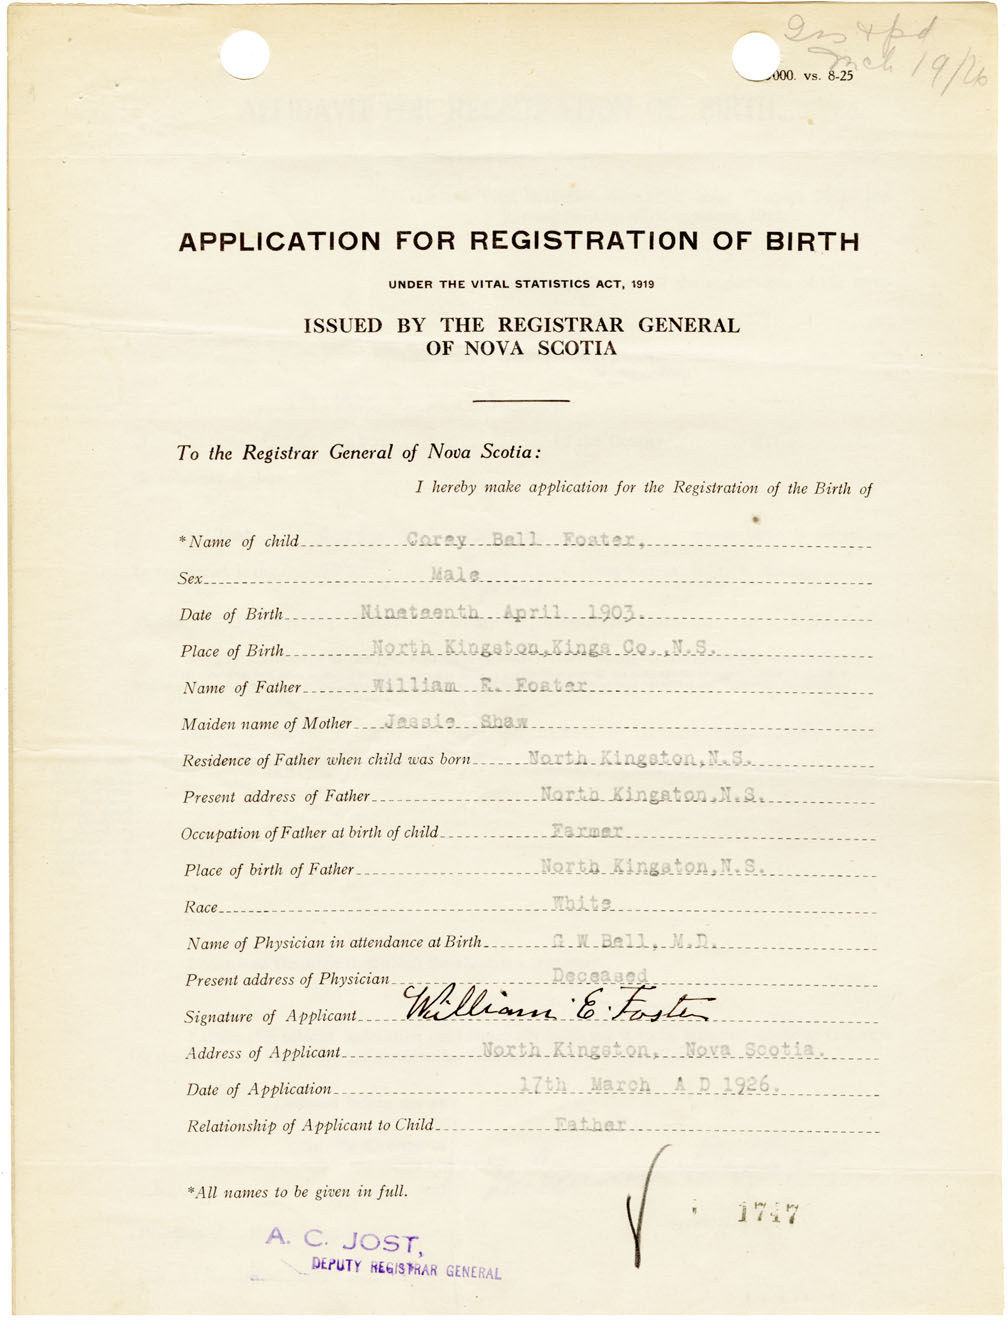 Ins & pd
Mch 19/26
000. vs. 8-25
APPLICATION FOR REGISTRATION OF BIRTH
UNDER THE VITAL STATISTICS ACT, 1919
ISSUED BY THE REGISTRAR GENERAL
OF NOVA SCOTIA
To the Registrar General of Nova Scotia:
I hereby make application for the Registration of the Birth of
*Name of child Corey Bell Foster,
Sex Male
Date of Birth Nineteenth April 1903.
Place of Birth North Kingston,Kings Co.,N.S.
Name of Father William E. Foster
Maiden name of Mother Jessie Shaw
Residence of Father when child was born North Kingston,N.S.
Present address of Father North Kingston,N.S.
Occupation of Father at birth of child Farmer
Place of birth of Father North Kingston,N.S.
Race White
Name of Physician in attendance at Birth G W Bell, M.D.
Present address of Physician Deceased
Signature of Applicant William E. Foster
Address of Applicant North Kingston, Nova Scotia.
Date of Application 17th March A D 1926.
Relationship of Applicant to Child Father
*All names to be given in full.
1747
A. C. JOST,
DEPUTY REGISTRAR GENERAL